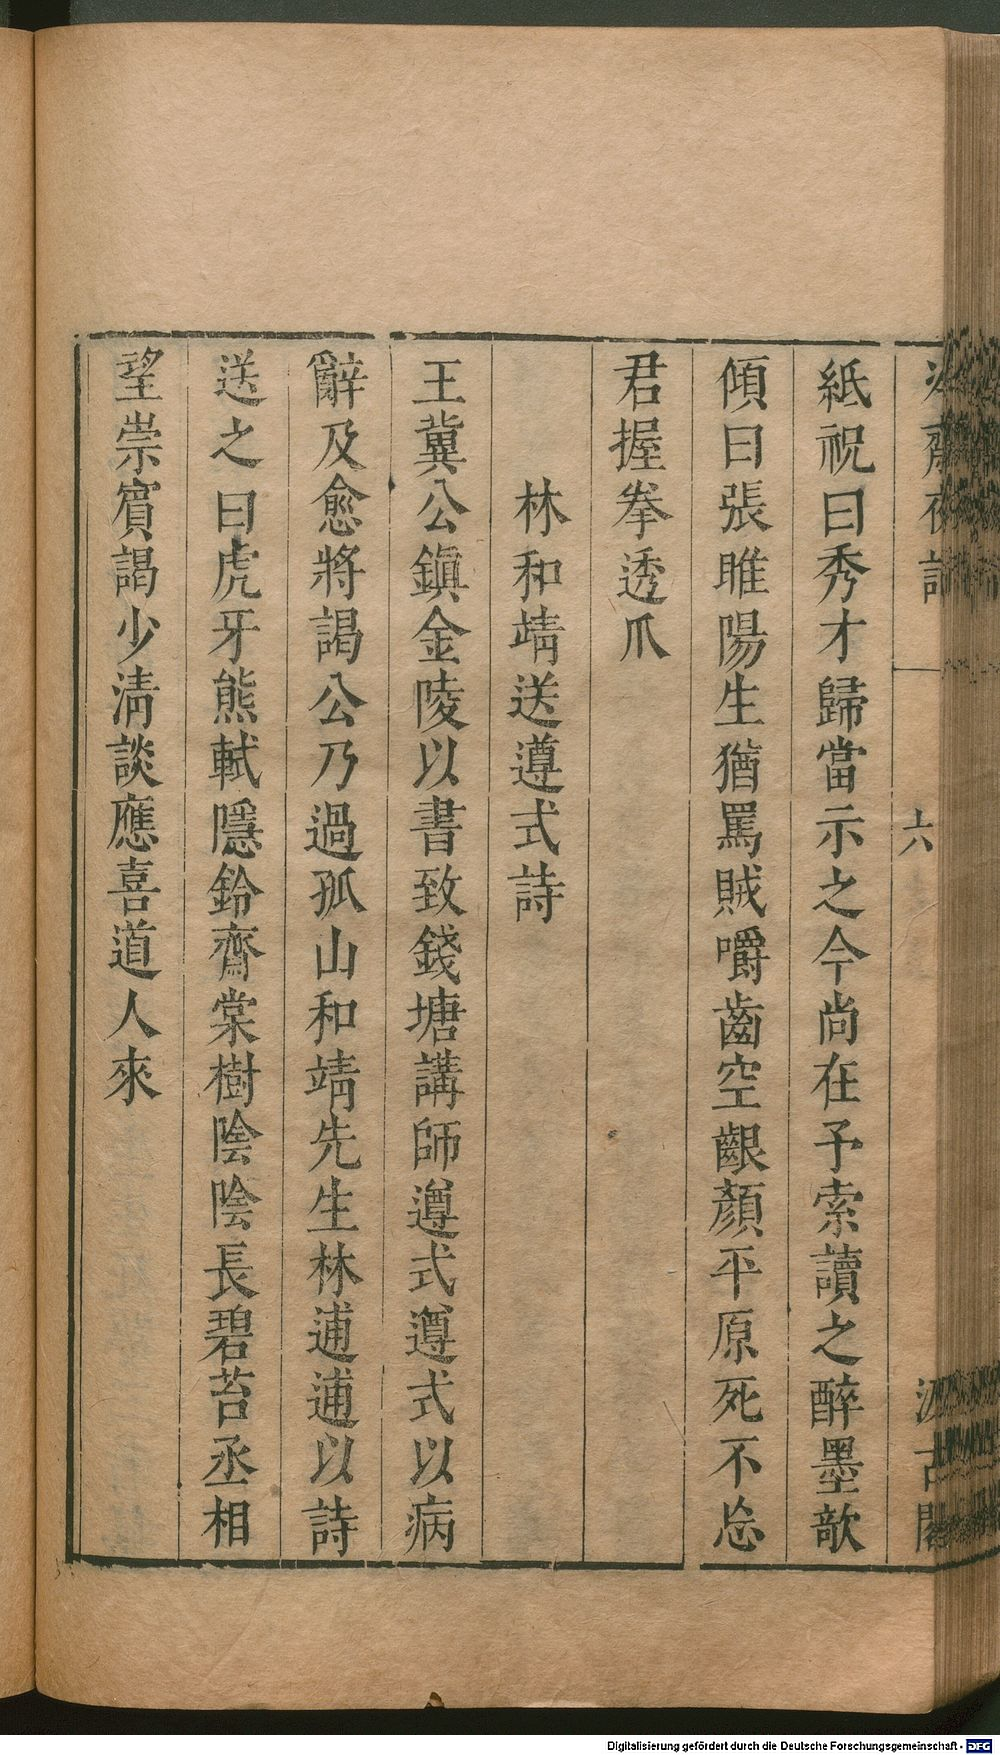 紙祝曰秀才歸當示之今尚在予索讀之醉墨欹
傾曰張睢陽生猶罵賊嚼齒空齦顏平原死不忘
君握拳透爪
林和靖送遵式詩
王冀公鎮金陵以書致錢塘講師遵式遵式以病
辭及愈將謁公乃過孤山和靖先生林逋逋以詩
送之曰虎牙熊軾隱鈴齋棠樹陰陰長碧苔丞相
望崇賓謁少淸談應喜道人來
齋夜話
六
汲古閣
Digitalisierung gefördert durch die Deutsche Forschungsgemeinschaft - DFG